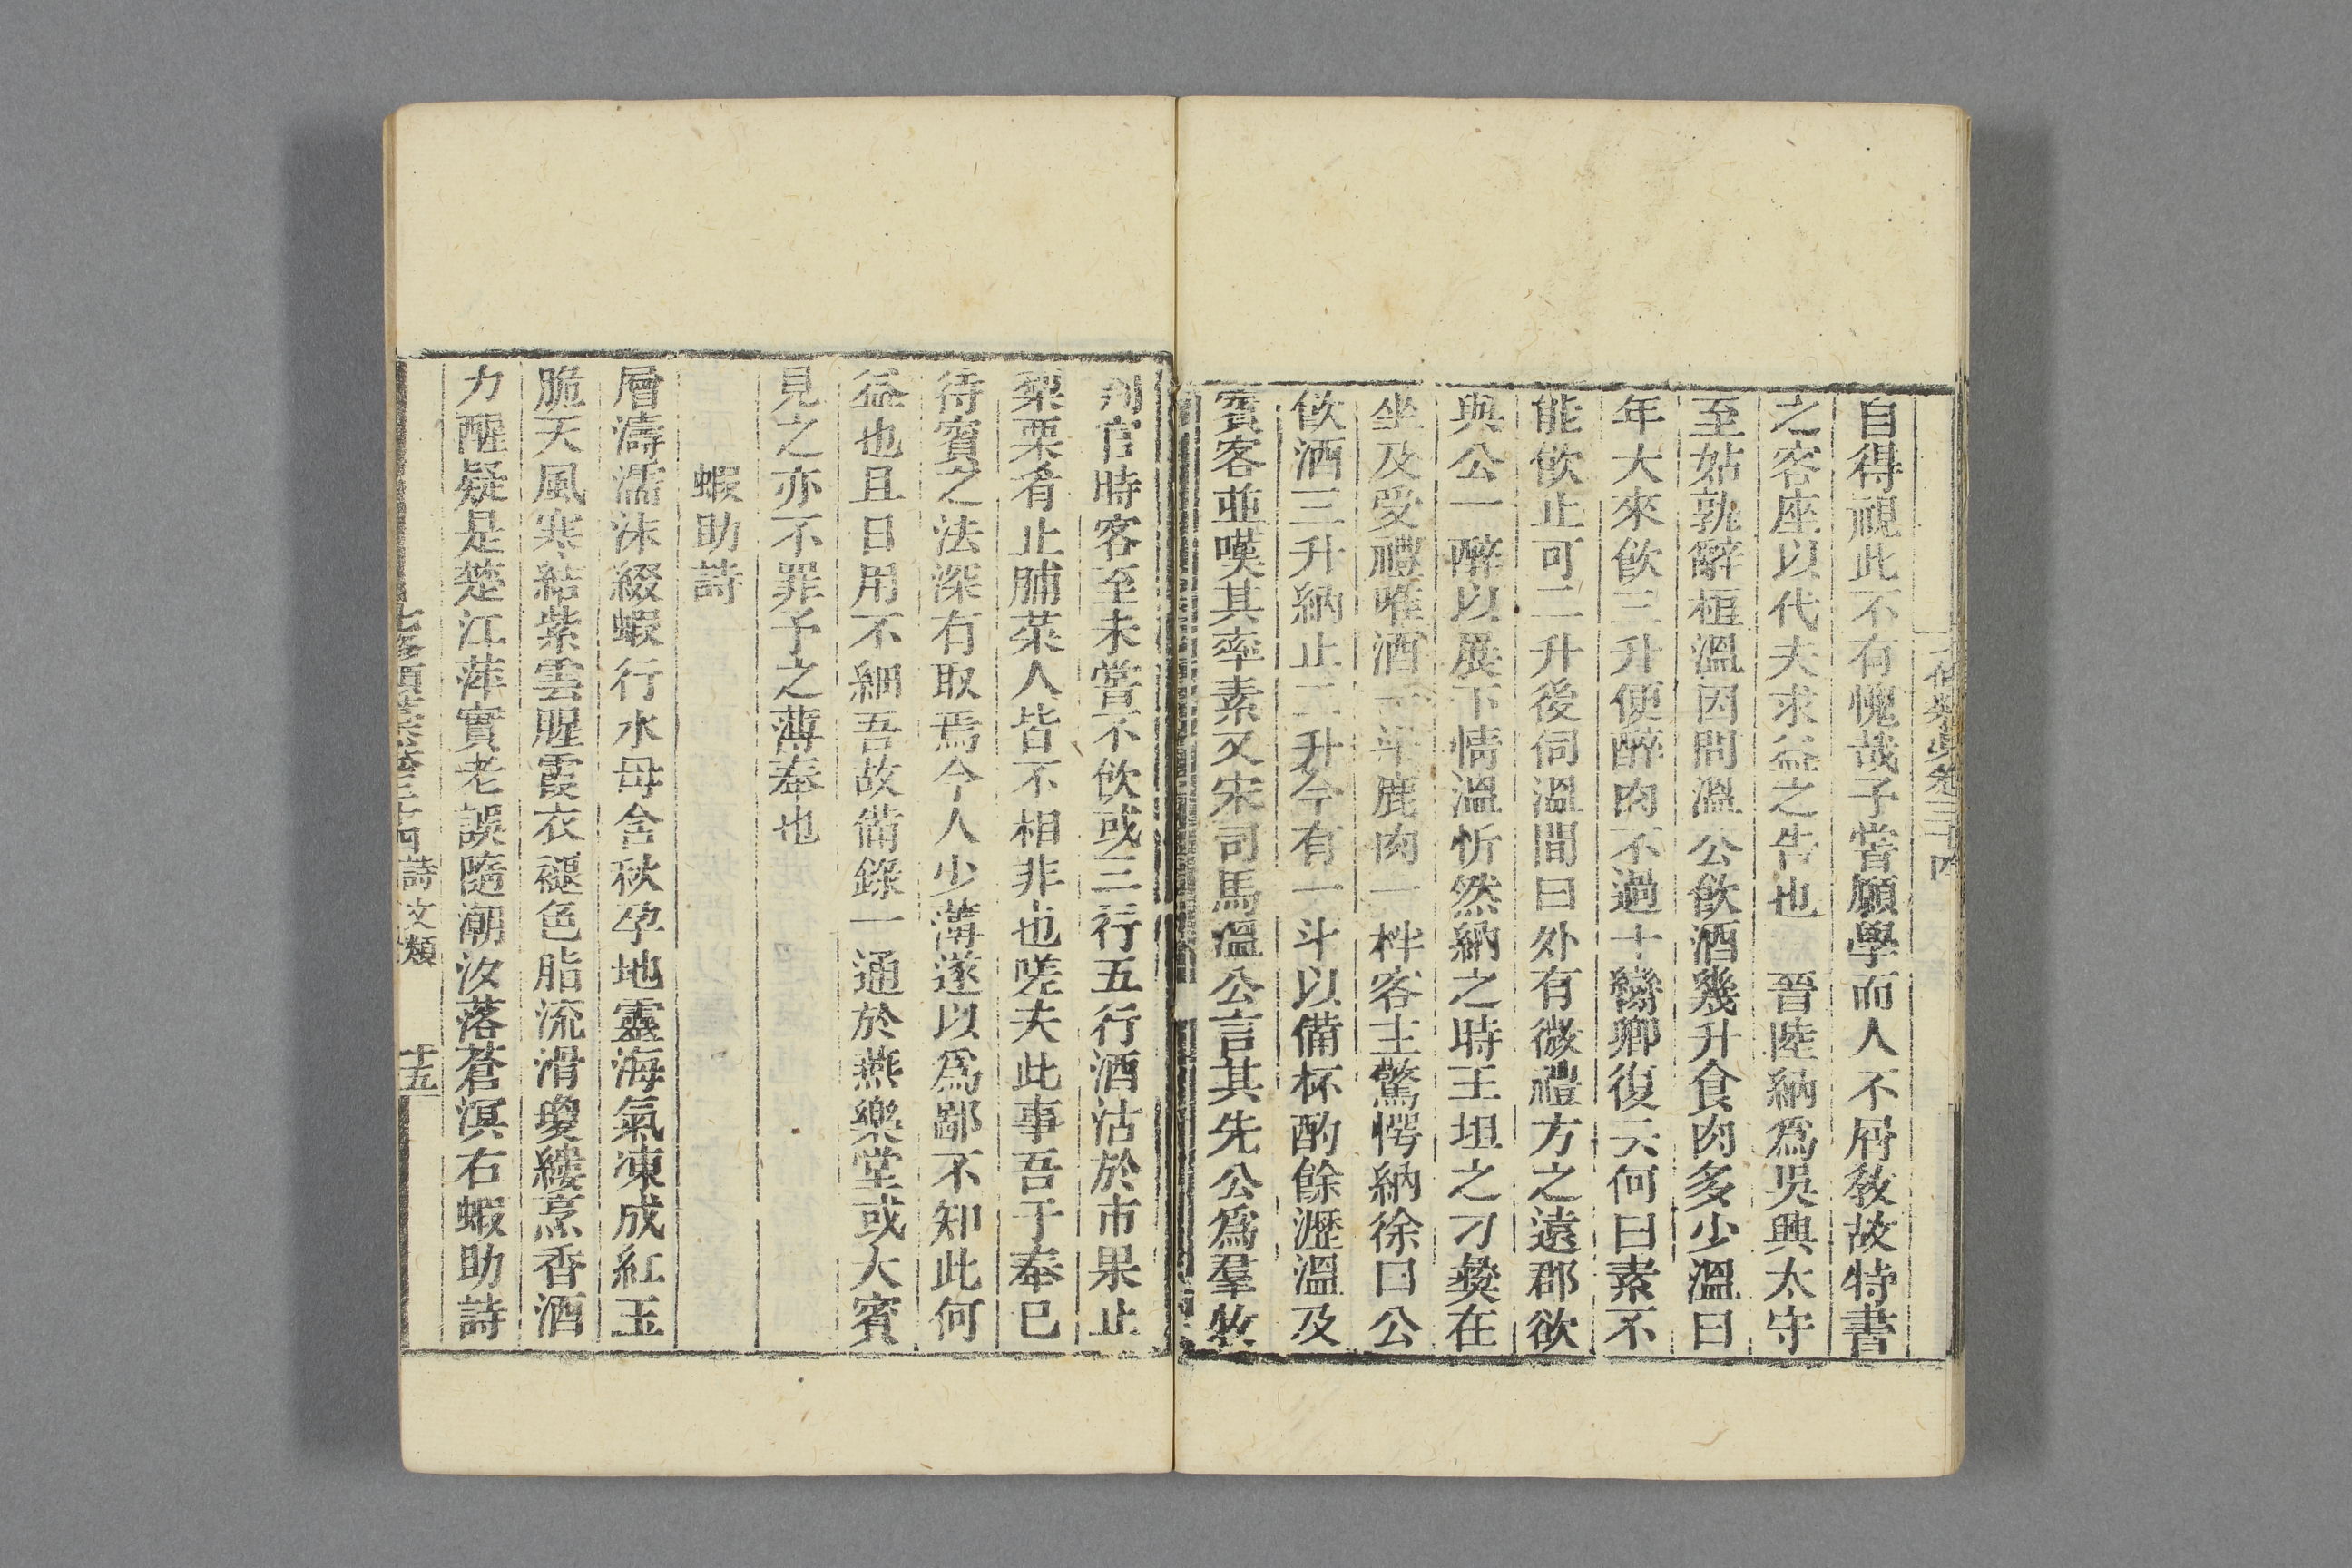 自得視此不有愧哉子嘗願學而人不屑敎故特書
之客座以代夫求益之告也　晉陸納爲吳興太守
至姑孰辭桓溫因問溫公飲酒幾升食肉多少溫曰
年大來飲三升便醉肉不過十臠卿復云何曰素不
能飲止可二升後伺溫間曰外有微禮方之遠郡欲
與公一醉以展下情溫忻然納之時王坦之刁彜在
坐及受禮唯酒一斗鹿肉一柈客主驚愕納徐曰公
飲酒三升納止二升今有一斗以備杯酌餘瀝溫及
賓客並嘆其率素又宋司馬溫公言其先公爲羣牧
判官時客至未嘗不飲或三行五行酒沽於市果止
梨栗肴止脯菜人皆不相非也嗟夫此事吾于奉已
待賓之法深有取焉今人少薄遂以爲鄙不知此何
益也且日用不細吾故備錄一通於燕樂堂或大賓
見之亦不罪予之薄奉也
蝦助詩
層濤濡沫綴蝦行水母含秋孕地靈海氣凍成紅玉
脆天風寒結紫雲腥霞衣褪色脂流滑瓊縷烹香酒
力醒疑是楚江萍實老誤隨潮汐落蒼溟右蝦助詩
七修類藁卷三十四　詩文類　十五